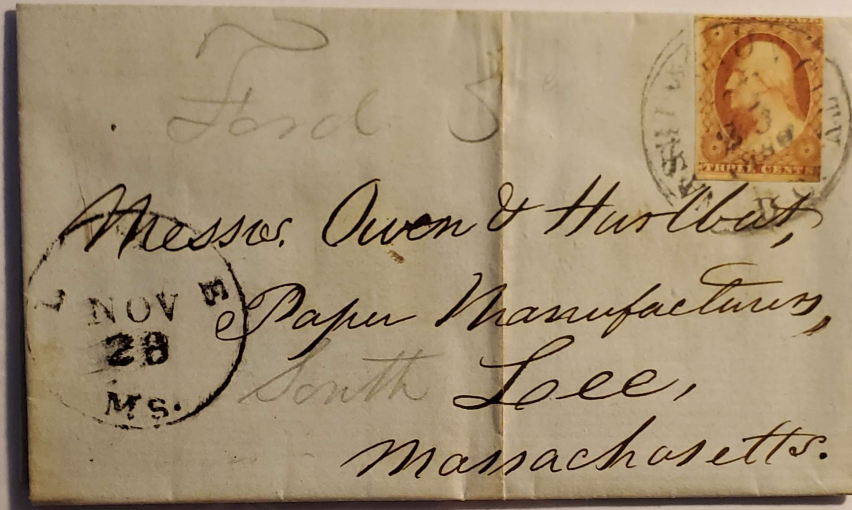 Ford
THREE CENTS
Messrs. Owen & Hurlbut,
Paper Manufacturers,
South Lee,
Massachusetts.
L E E
NOV
28
MS.